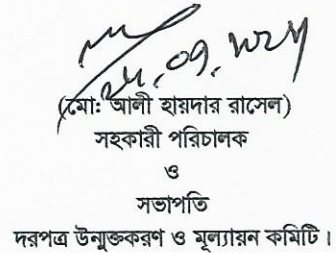 (মো: আলী হায়দার রাসেল)
সহকারী পরিচালক
ও
সভাপতি
দরপত্র উন্মুক্তকরণ ও মূল্যায়ন কমিটি।